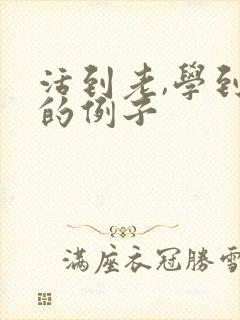 活到老,學到
的例子
滿座衣冠勝雪